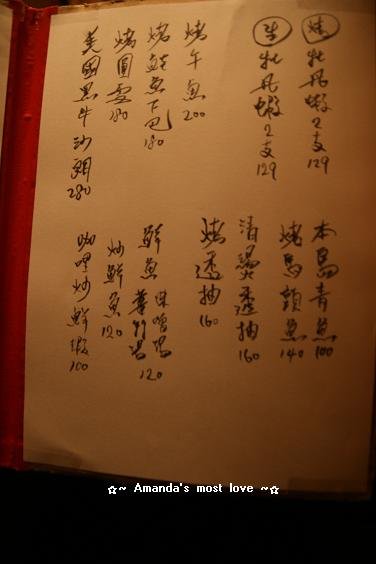 烤牡丹蝦2支129
生牡丹蝦2支129
烤午魚200
烤鮭魚下巴180
烤圓雪180
美國黑牛沙朗280
本島青魚100
烤馬頭魚140
清燙透抽160
烤透抽160
鮮魚 味噌湯 薑絲湯 120
炒鮮魚120
咖哩炒鮮蝦100
☆~ Amanda's most love ~☆